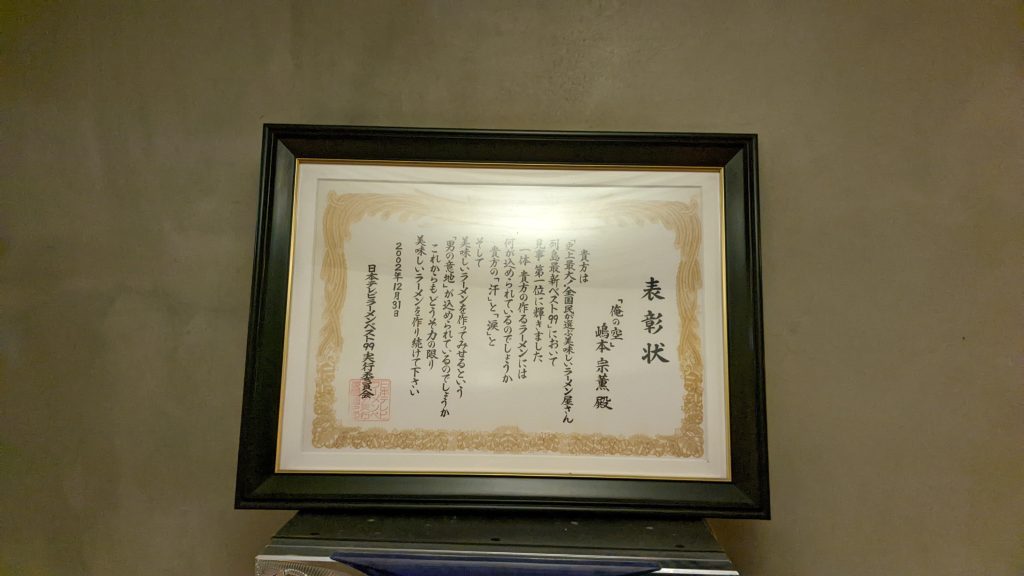 表彰状
「俺の空」
嶋本 宗薫 殿
貴方は
「史上最大!全国民が選ぶ美味しいラーメン屋さん
列島最新ベスト99」において
見事 第一位に輝きました
一体 貴方の作るラーメンには
何が込められているのでしょうか
貴方の「汗」と「涙」と
そして
美味しいラーメンを作ってみせるという
「男の意地」が込められているのでしょうか
これからもどうぞ力の限り
美味しいラーメンを作り続けて下さい
2002年12月31日
日本テレビラーメンベスト99実行委員会